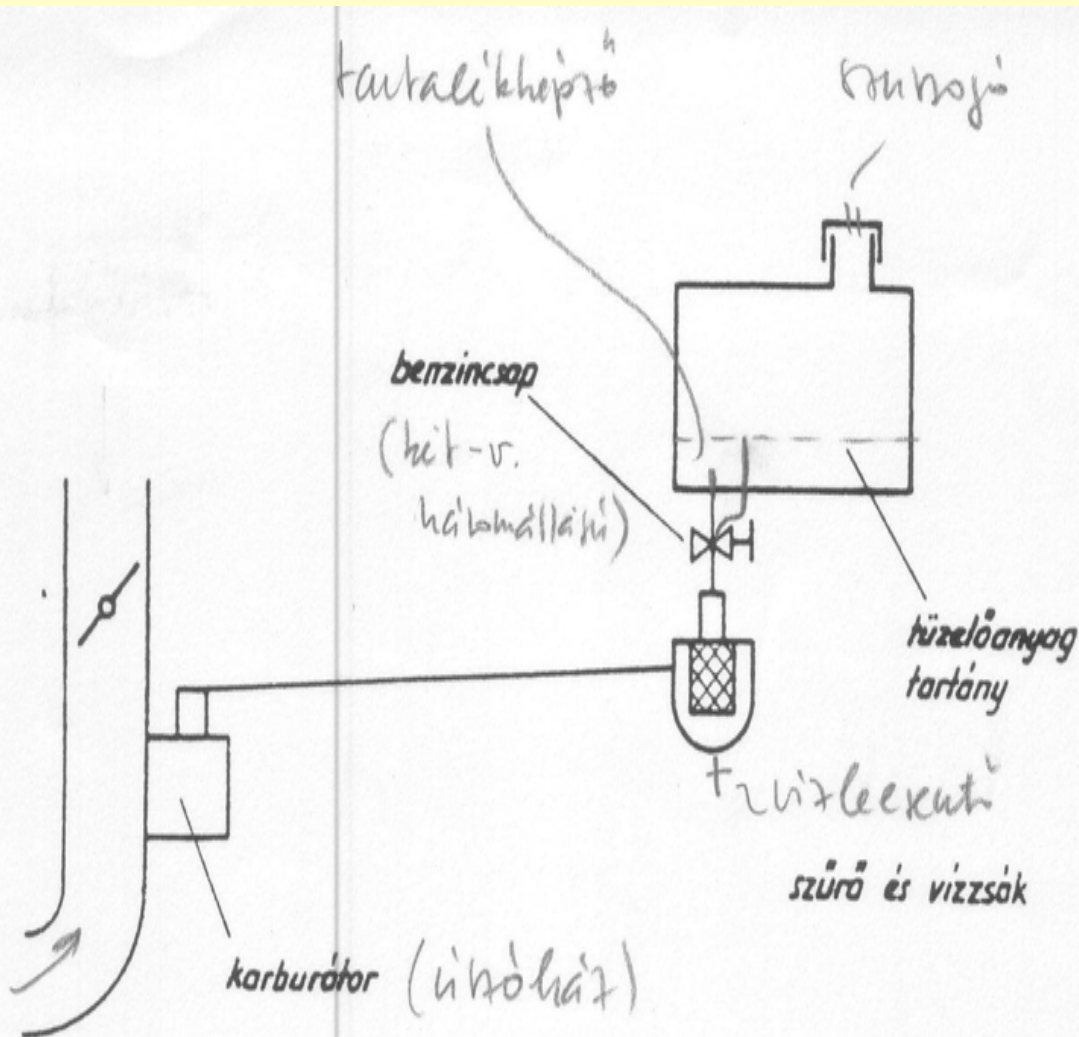 tartalékképző
szuszogó
benzincsap
(két-v.
háromállású)
tüzelőanyag
tartány
vízleeresztő
szűrő és vízzsák
karburátor (úszóház)